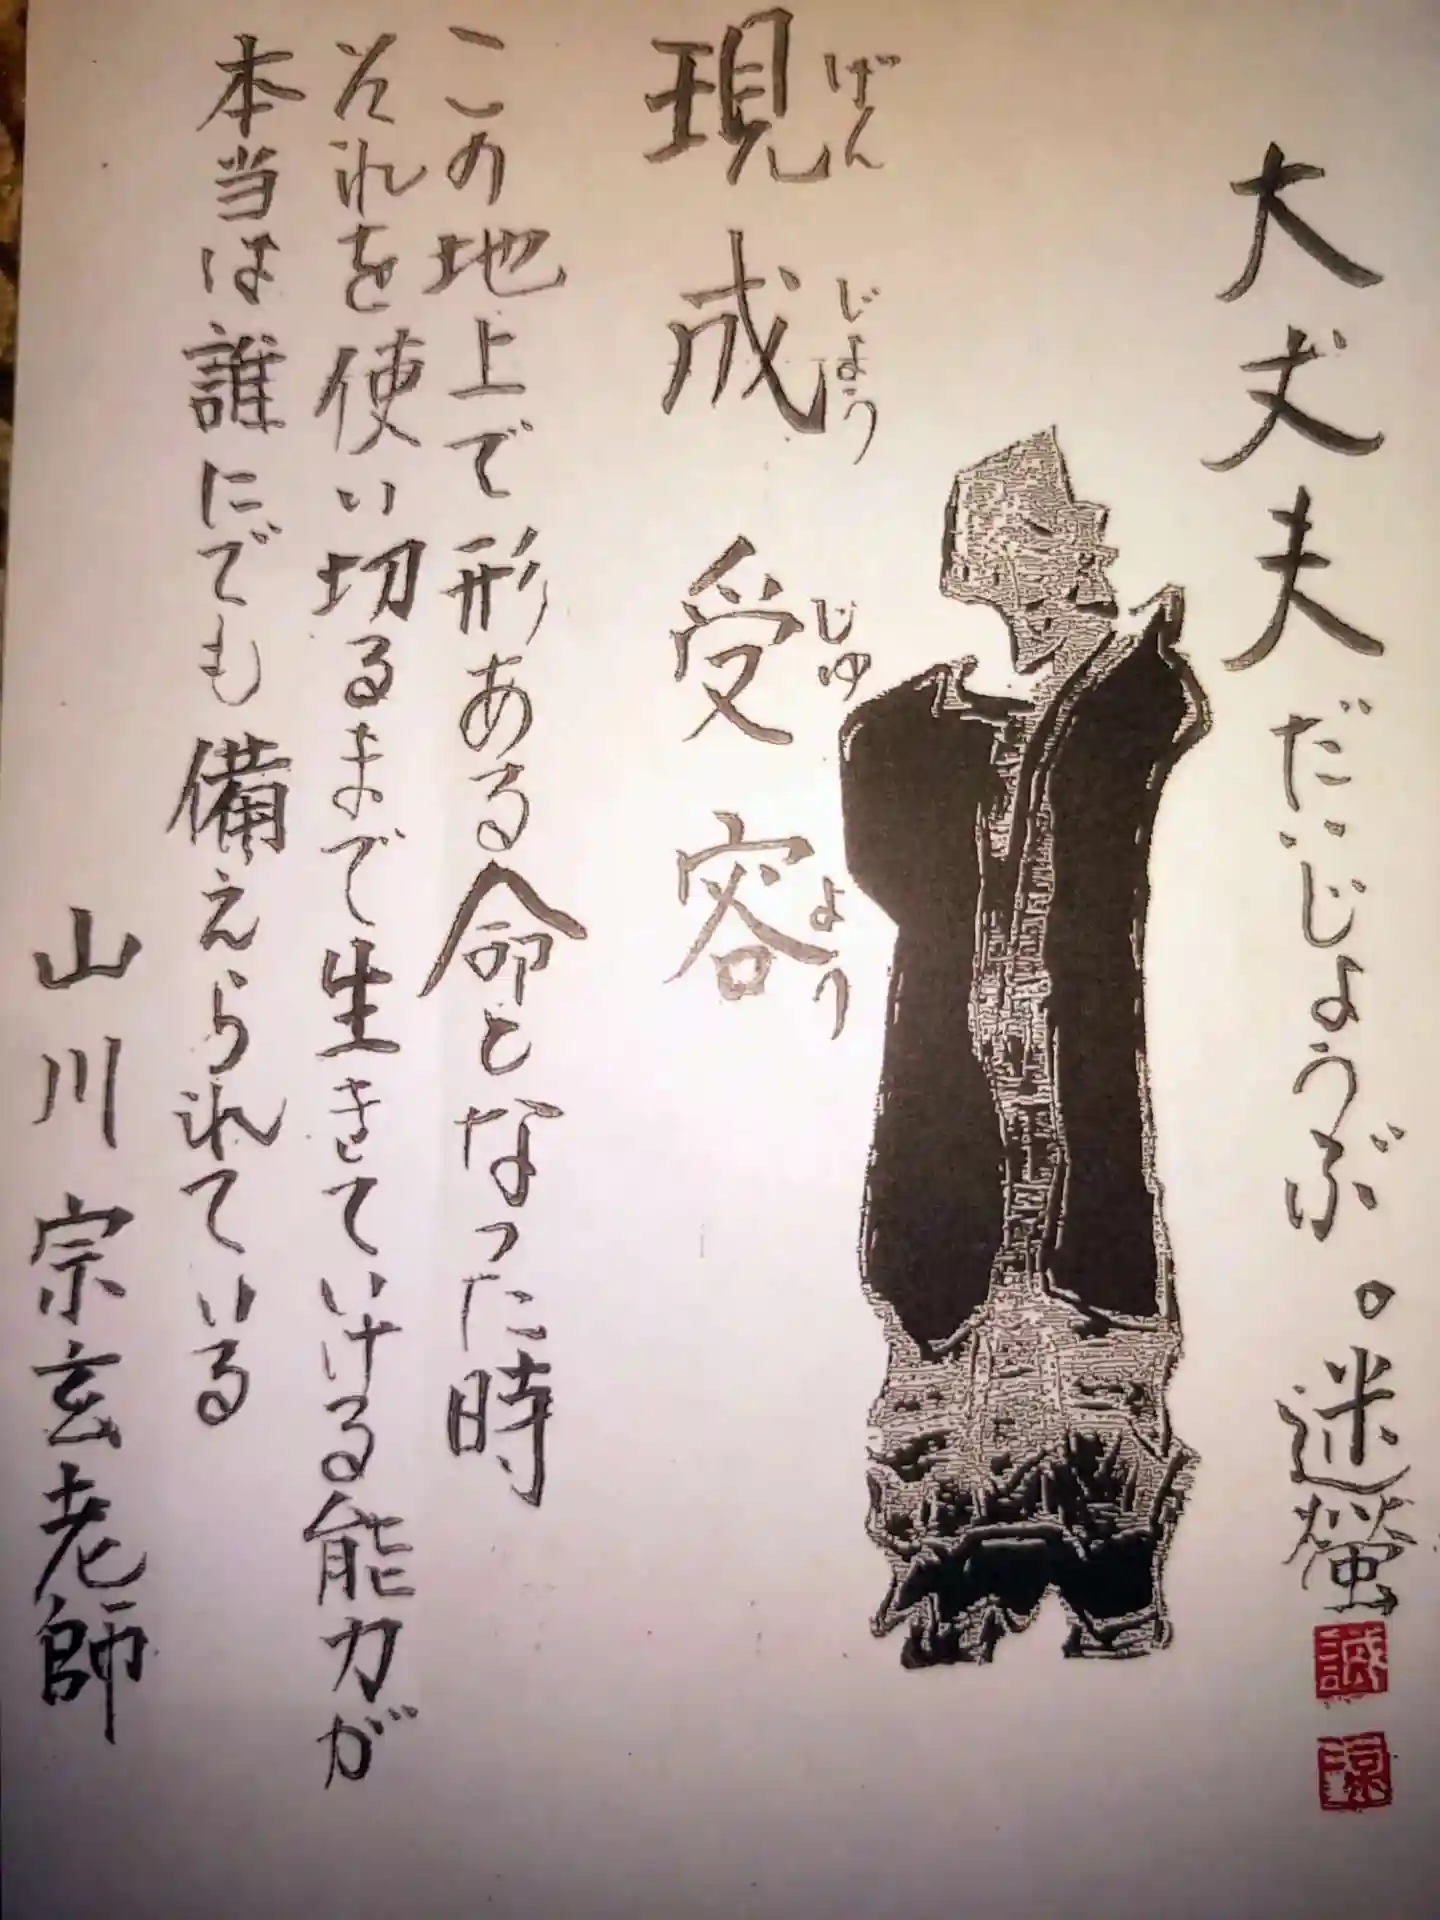 大丈夫だいじょうぶ。迷螢
誠
現成受容
げんじょうじゅよう
この地上で形ある命となった時
それを使い切るまで生きていける能力が
本当は誰にでも備えられている
山川宗玄老師